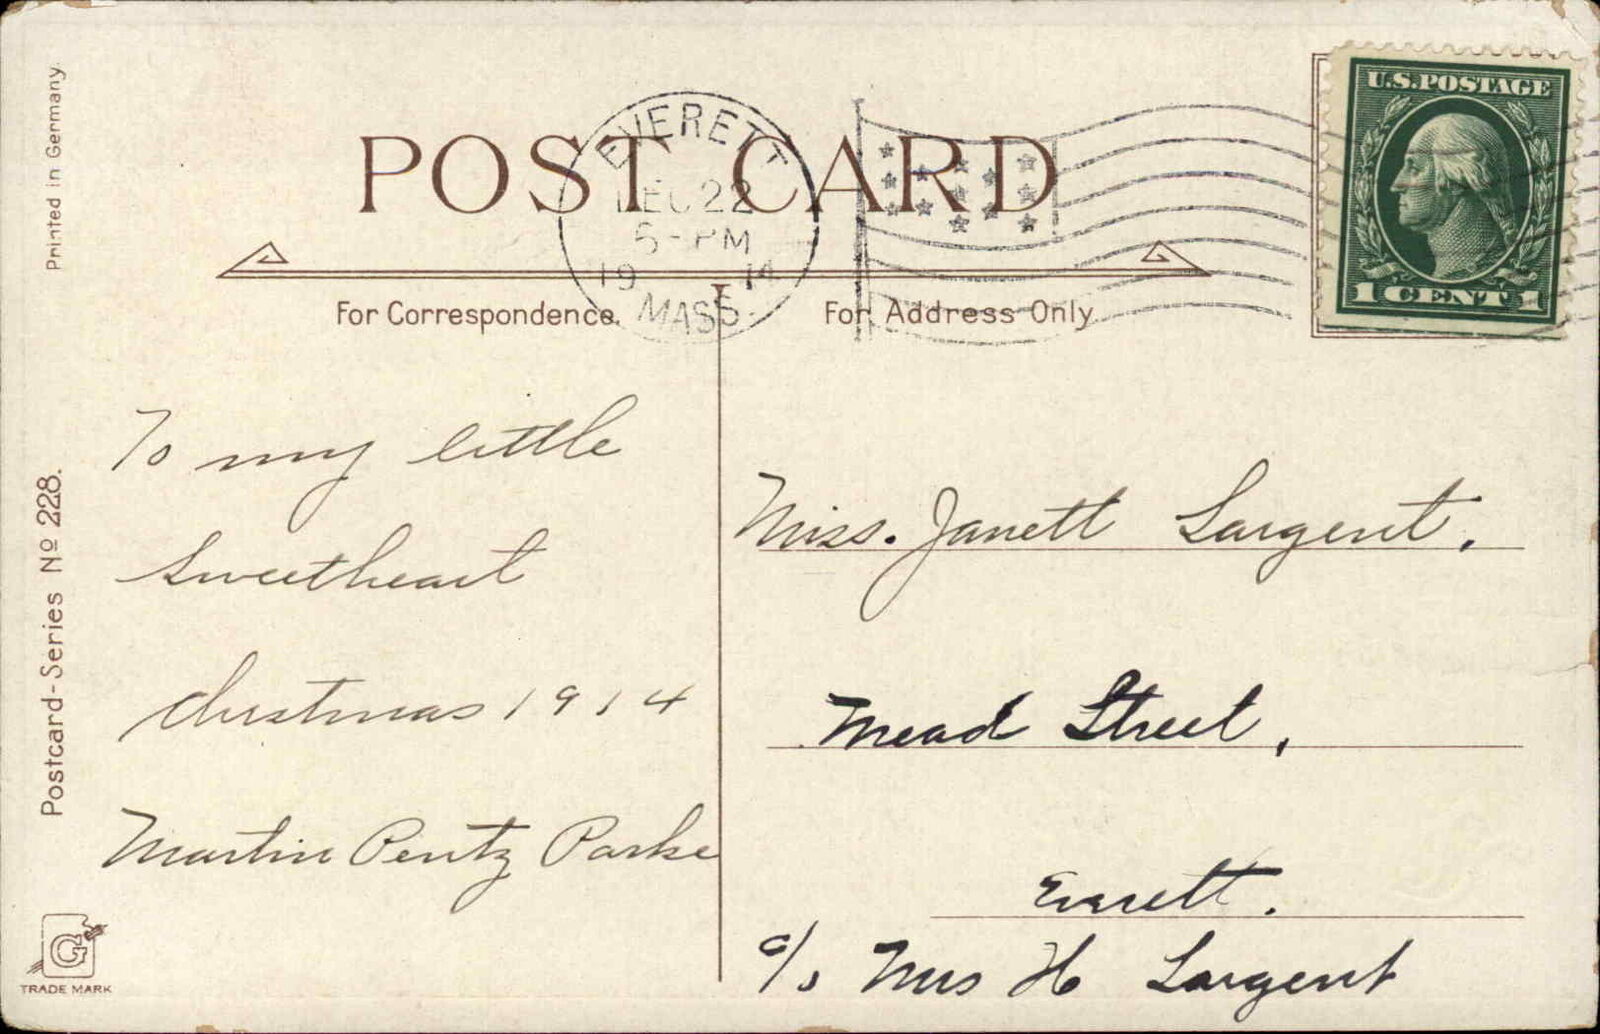 Printed in Germany
Postcard-Series No 228.
POST CARD
EVERETT
DEC 22
5-PM
1914
MASS.
U.S. POSTAGE
1 CENT 1
For Correspondence.
For Address Only
To my little
Sweetheart
Christmas 1914
Martin Pentz Parke
Miss. Janett Sargent.
Mead Street,
Everett.
c/o Mrs H Sargent
G
TRADE MARK